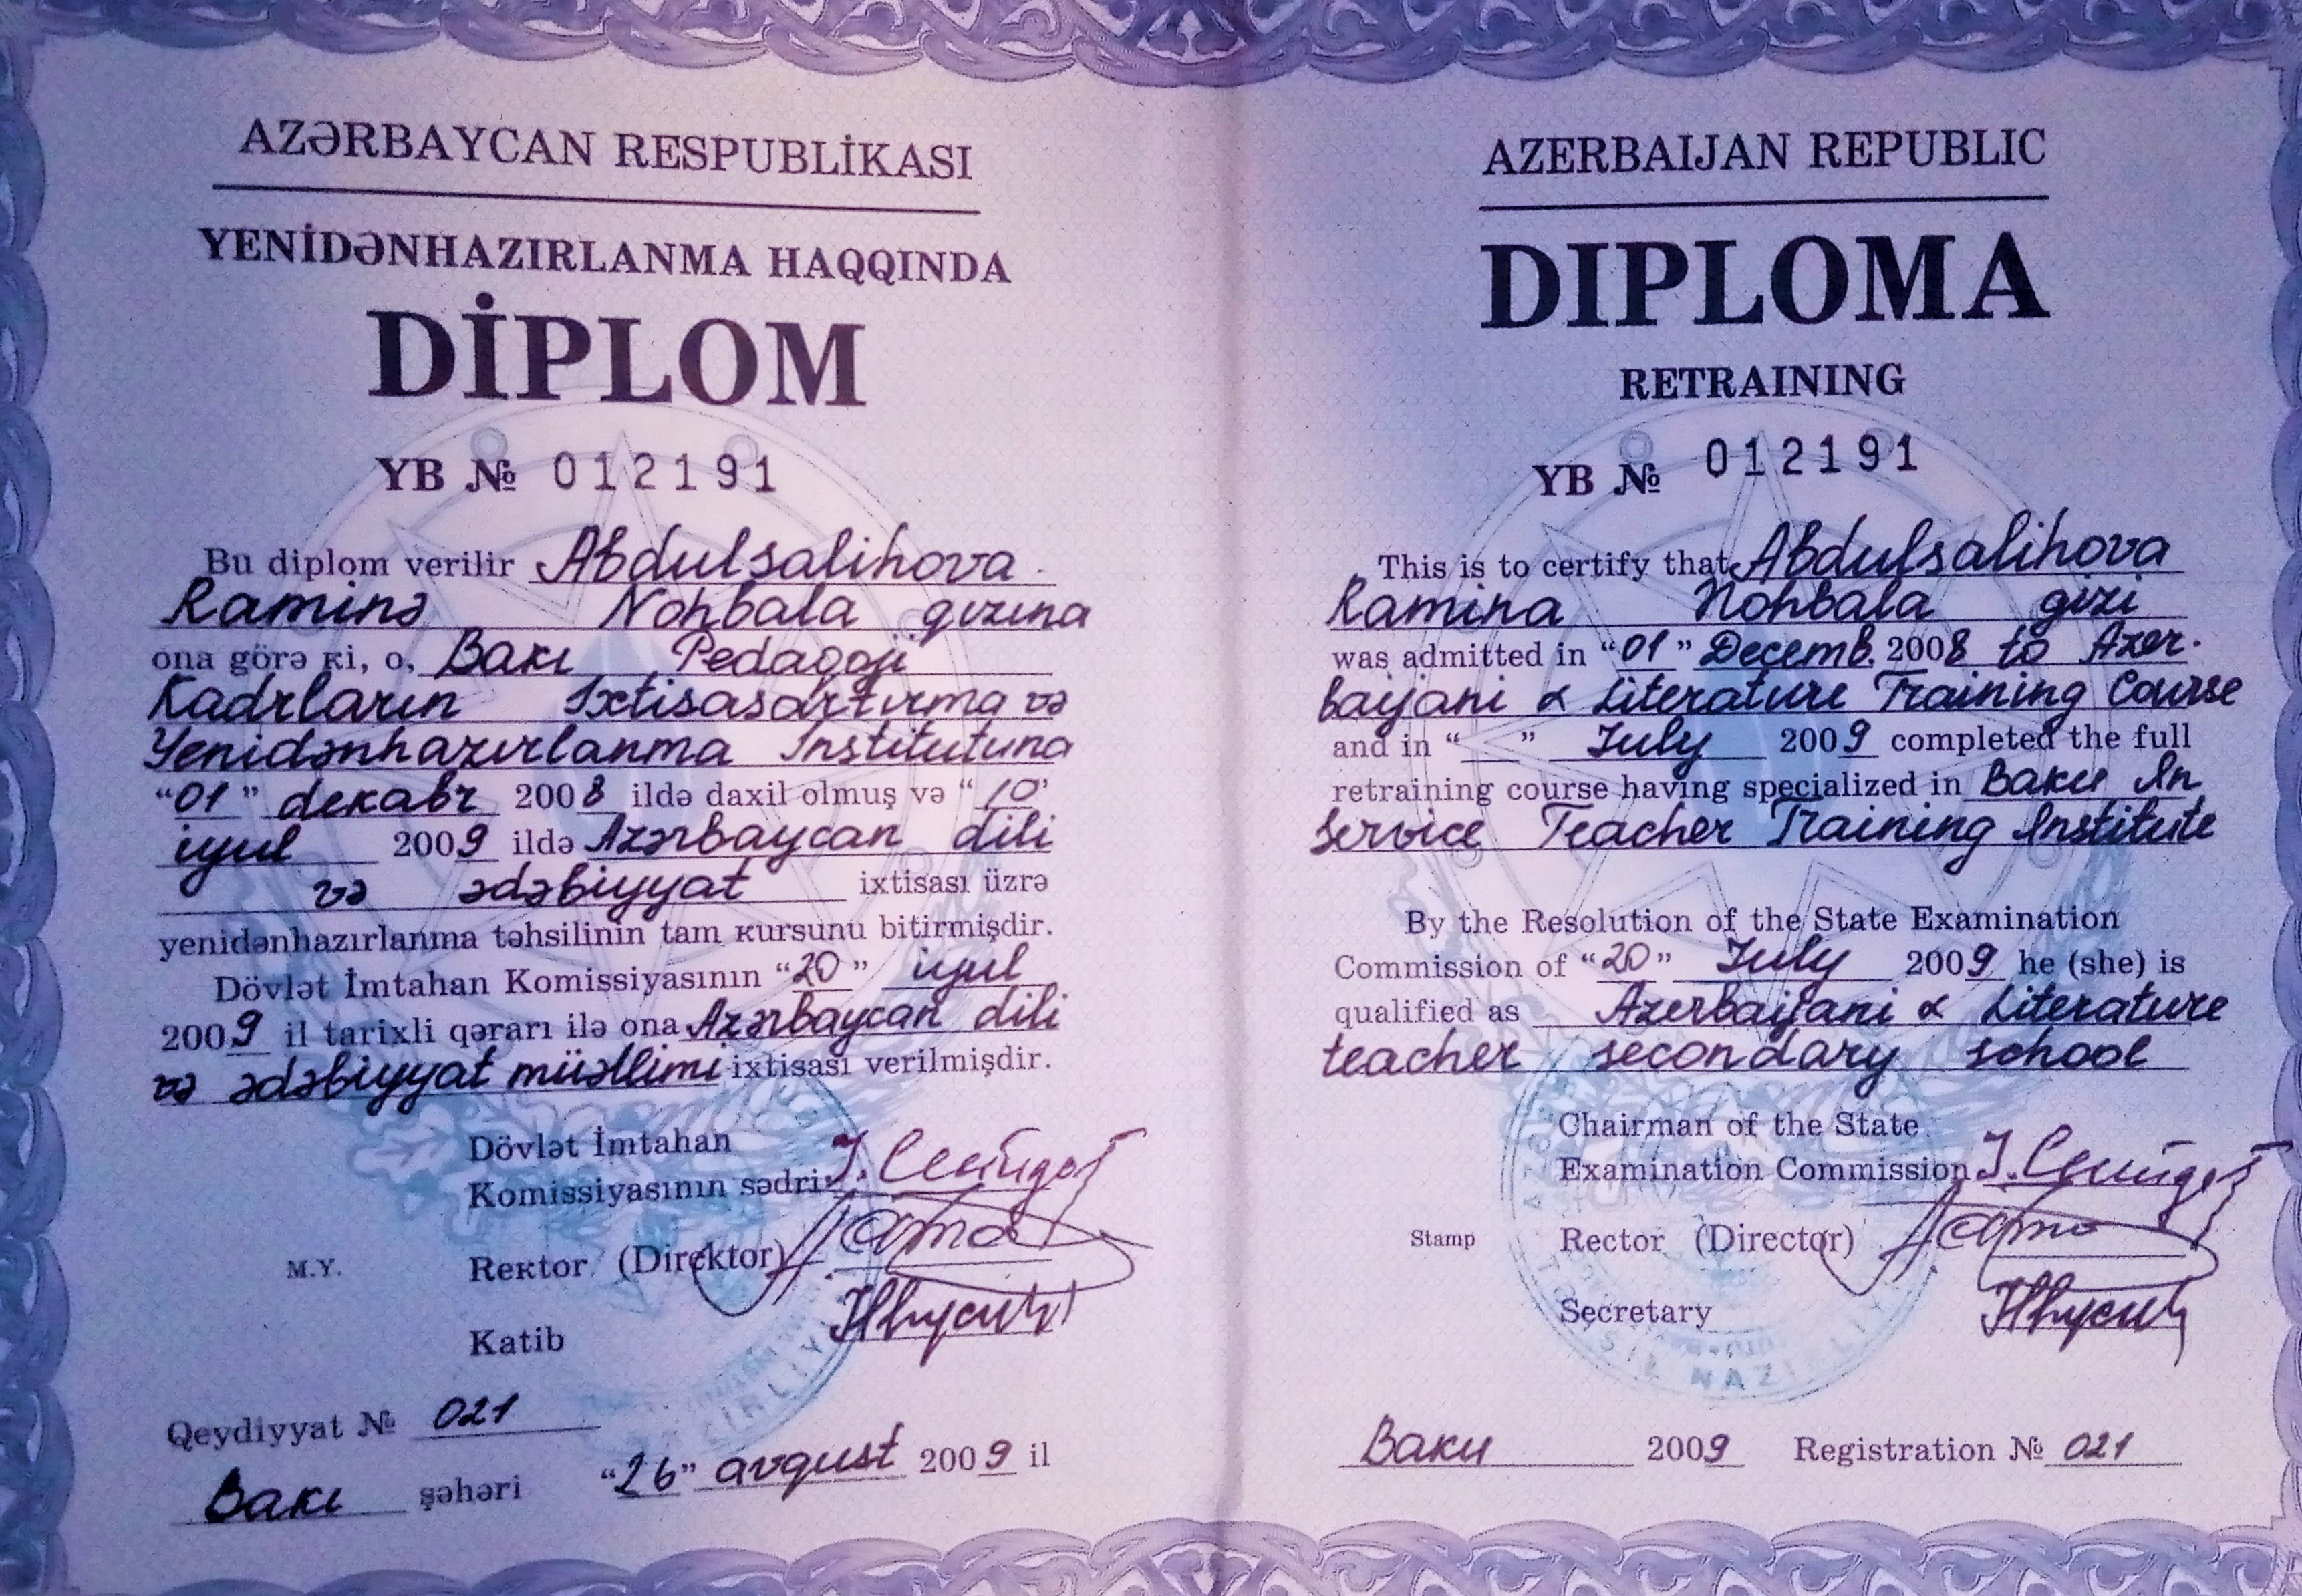 AZƏRBAYCAN RESPUBLİKASI
YENİDƏNHAZIRLANMA HAQQINDA
DİPLOM
YB № 012191
Bu diplom verilir Abdulsalihova
Raminə Nohbala qızına
ona görə ki, o, Bakı Pedaqoji
Kadrların İxtisasartırma və
Yenidənhazırlanma İnstitutuna
"01" dekabr 2008 ildə daxil olmuş və "10"
iyul 2009 ildə Azərbaycan dili
və ədəbiyyat ixtisası üzrə
yenidənhazırlanma təhsilinin tam kursunu bitirmişdir.
Dövlət İmtahan Komissiyasının "20" iyul
2009 il tarixli qərarı ilə ona Azərbaycan dili
və ədəbiyyat müəllimi ixtisası verilmişdir.
Dövlət İmtahan
Komissiyasının sədri
M.Y. Rektor (Direktor)
Katib
Qeydiyyat № 021
Bakı şəhəri "26" avqust 2009 il
AZERBAIJAN REPUBLIC
DIPLOMA
RETRAINING
YB № 012191
This is to certify that Abdulsalihova
Ramina Nohbala gizi
was admitted in "01" Decemb. 2008 to Azer-
baijani & Literature Training Course
and in " " July 2009 completed the full
retraining course having specialized in Baku In
Service Teacher Training Institute
By the Resolution of the State Examination
Commission of "20" July 2009 he (she) is
qualified as Azerbaijani & Literature
teacher secondary school
Chairman of the State
Examination Commission
Stamp Rector (Director)
Secretary
Baku 2009 Registration № 021